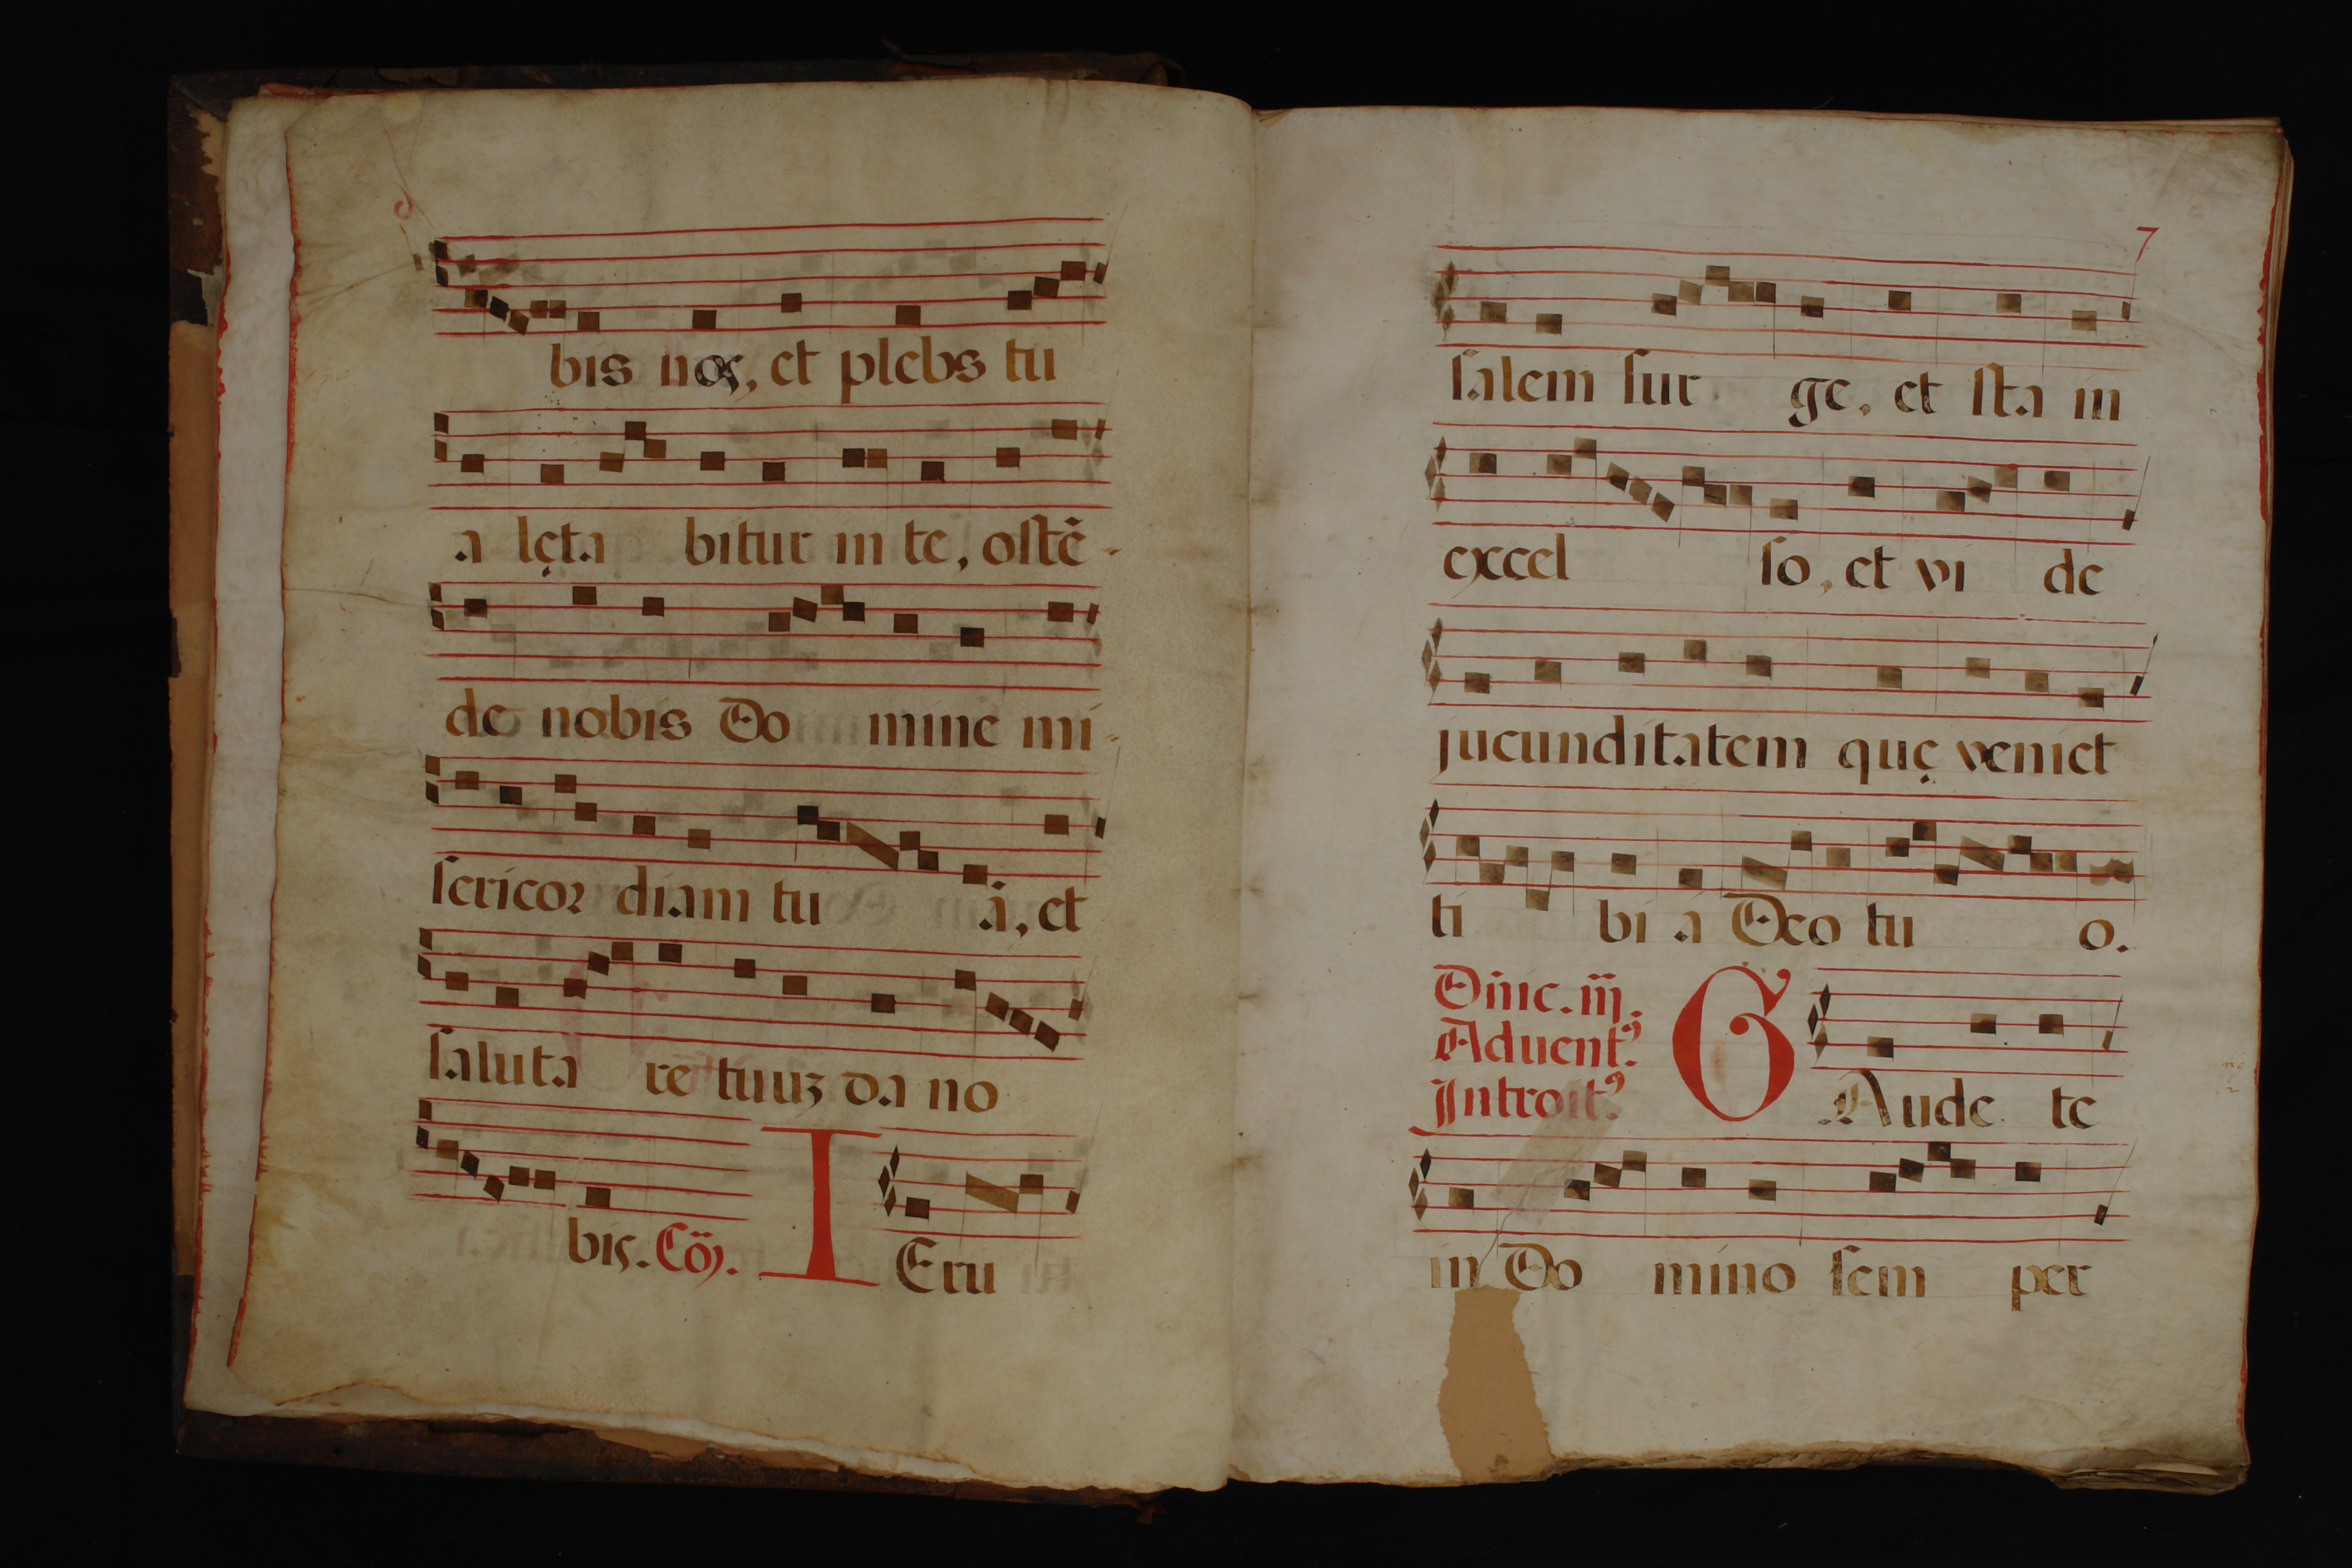 bis nos, et plebs tu
a lęta bitur in te, ostē-
de nobis Do mine mi-
sericor diam tu ā, et
saluta re tuuʒ da no
bis. Cõ. I Eru
7
salem sur ge, et sta in
excel so, et vi de
jucunditatem quę veniet
ti bi a Deo tu o.
Dñic. iij.
Aduentꝰ.
Introitꝰ.
G Aude te
in Do mino sem per